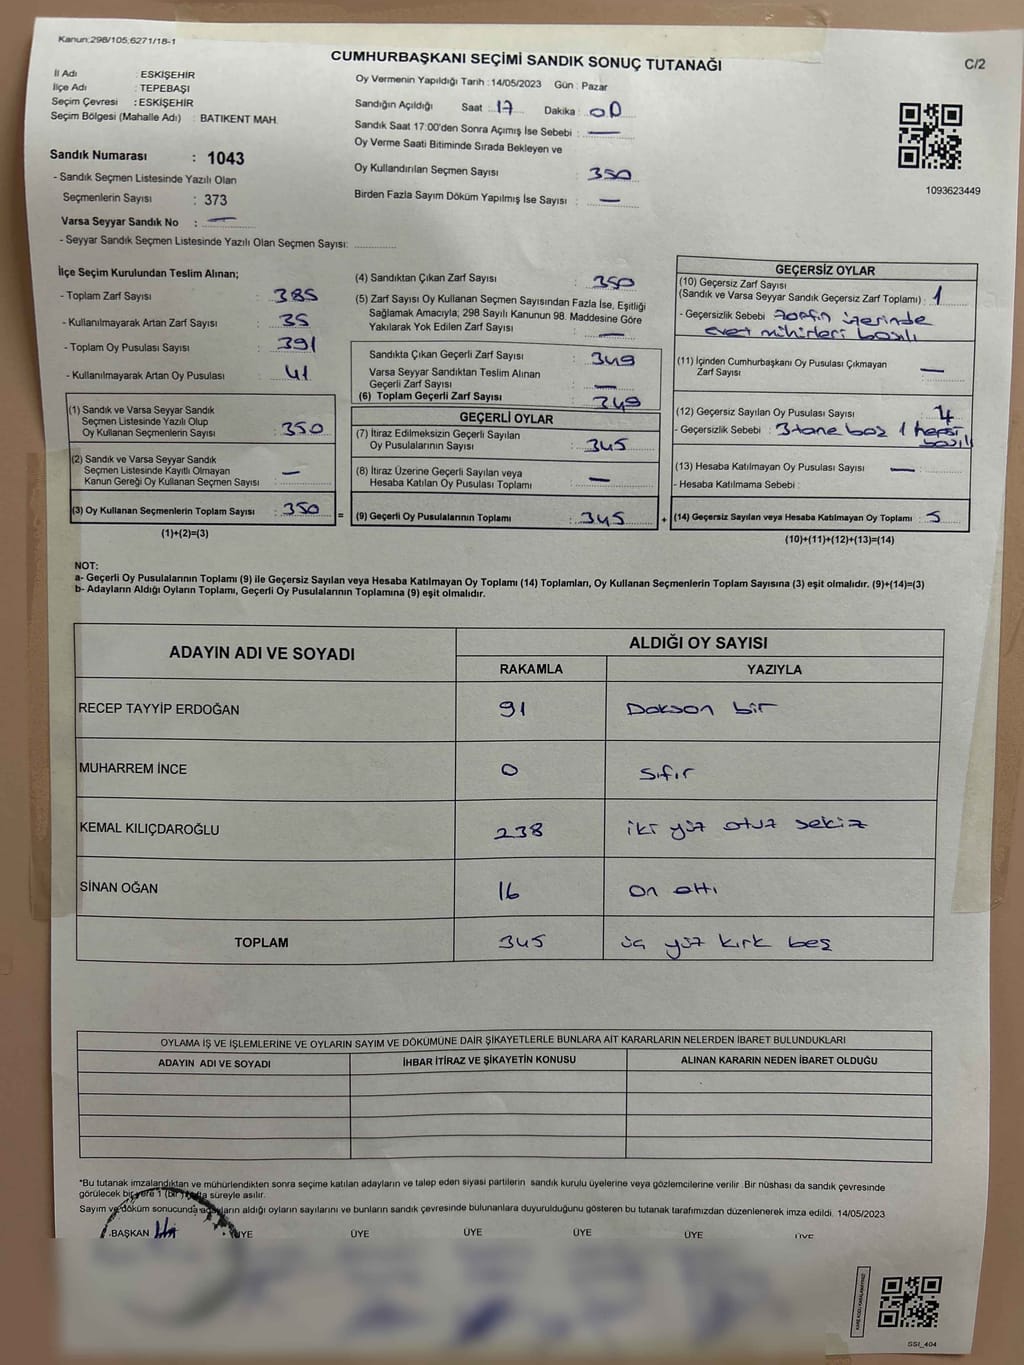 Kanun:298/105,6271/18-1
CUMHURBAŞKANI SEÇİMİ SANDIK SONUÇ TUTANAĞI
C/2
İl Adı : ESKİŞEHİR
İlçe Adı : TEPEBAŞI
Seçim Çevresi : ESKİŞEHİR
Seçim Bölgesi (Mahalle Adı) : BATIKENT MAH.
Oy Vermenin Yapıldığı Tarih : 14/05/2023 Gün : Pazar
Sandığın Açıldığı Saat 17 Dakika 00
Sandık Saat 17:00'den Sonra Açımış İse Sebebi : —
Oy Verme Saati Bitiminde Sırada Bekleyen ve
Oy Kullandırılan Seçmen Sayısı : 350
Birden Fazla Sayım Döküm Yapılmış İse Sayısı : —
1093623449
Sandık Numarası : 1043
- Sandık Seçmen Listesinde Yazılı Olan
Seçmenlerin Sayısı : 373
Varsa Seyyar Sandık No : —
- Seyyar Sandık Seçmen Listesinde Yazılı Olan Seçmen Sayısı:
İlçe Seçim Kurulundan Teslim Alınan;
- Toplam Zarf Sayısı : 385
- Kullanılmayarak Artan Zarf Sayısı : 35
- Toplam Oy Pusulası Sayısı : 391
- Kullanılmayarak Artan Oy Pusulası : 41
(1) Sandık ve Varsa Seyyar Sandık
Seçmen Listesinde Yazılı Olup
Oy Kullanan Seçmenlerin Sayısı : 350
(2) Sandık ve Varsa Seyyar Sandık
Seçmen Listesinde Kayıtlı Olmayan
Kanun Gereği Oy Kullanan Seçmen Sayısı : —
(3) Oy Kullanan Seçmenlerin Toplam Sayısı : 350 =
(1)+(2)=(3)
(4) Sandıktan Çıkan Zarf Sayısı : 350
(5) Zarf Sayısı Oy Kullanan Seçmen Sayısından Fazla İse, Eşitliği
Sağlamak Amacıyla; 298 Sayılı Kanunun 98. Maddesine Göre
Yakılarak Yok Edilen Zarf Sayısı : —
Sandıkta Çıkan Geçerli Zarf Sayısı : 349
Varsa Seyyar Sandıktan Teslim Alınan
Geçerli Zarf Sayısı : —
(6) Toplam Geçerli Zarf Sayısı : 349
GEÇERLİ OYLAR
(7) İtiraz Edilmeksizin Geçerli Sayılan
Oy Pusulalarının Sayısı : 345
(8) İtiraz Üzerine Geçerli Sayılan veya
Hesaba Katılan Oy Pusulası Toplamı : —
(9) Geçerli Oy Pusulalarının Toplamı : 345 +
GEÇERSİZ OYLAR
(10) Geçersiz Zarf Sayısı
(Sandık ve Varsa Seyyar Sandık Geçersiz Zarf Toplamı) : 1
- Geçersizlik Sebebi : zarfın üzerinde
evet mühürleri basılı
(11) İçinden Cumhurbaşkanı Oy Pusulası Çıkmayan
Zarf Sayısı : —
(12) Geçersiz Sayılan Oy Pusulası Sayısı : 4
- Geçersizlik Sebebi : 3 tane boz 1 hepsi
basılı
(13) Hesaba Katılmayan Oy Pusulası Sayısı : —
- Hesaba Katılmama Sebebi :
(14) Geçersiz Sayılan veya Hesaba Katılmayan Oy Toplamı : 5
(10)+(11)+(12)+(13)=(14)
NOT:
a- Geçerli Oy Pusulalarının Toplamı (9) ile Geçersiz Sayılan veya Hesaba Katılmayan Oy Toplamı (14) Toplamları, Oy Kullanan Seçmenlerin Toplam Sayısına (3) eşit olmalıdır. (9)+(14)=(3)
b- Adayların Aldığı Oyların Toplamı, Geçerli Oy Pusulalarının Toplamına (9) eşit olmalıdır.
ADAYIN ADI VE SOYADI ALDIĞI OY SAYISI
RAKAMLA YAZIYLA
RECEP TAYYİP ERDOĞAN 91 Doksan bir
MUHARREM İNCE 0 sıfır
KEMAL KILIÇDAROĞLU 238 iki yüz otuz sekiz
SİNAN OĞAN 16 on altı
TOPLAM 345 üç yüz kırk beş
OYLAMA İŞ VE İŞLEMLERİNE VE OYLARIN SAYIM VE DÖKÜMÜNE DAİR ŞİKAYETLERLE BUNLARA AİT KARARLARIN NELERDEN İBARET BULUNDUKLARI
ADAYIN ADI VE SOYADI İHBAR İTİRAZ VE ŞİKAYETİN KONUSU ALINAN KARARIN NEDEN İBARET OLDUĞU
*Bu tutanak imzalandıktan ve mühürlendikten sonra seçime katılan adayların ve talep eden siyasi partilerin sandık kurulu üyelerine veya gözlemcilerine verilir. Bir nüshası da sandık çevresinde
görülecek bir yere 1 (bir) hafta süreyle asılır.
Sayım ve döküm sonucunda adayların aldığı oyların sayılarını ve bunların sandık çevresinde bulunanlara duyurulduğunu gösteren bu tutanak tarafımızdan düzenlenerek imza edildi. 14/05/2023
BAŞKAN ÜYE ÜYE ÜYE ÜYE ÜYE ÜYE
SSI_404